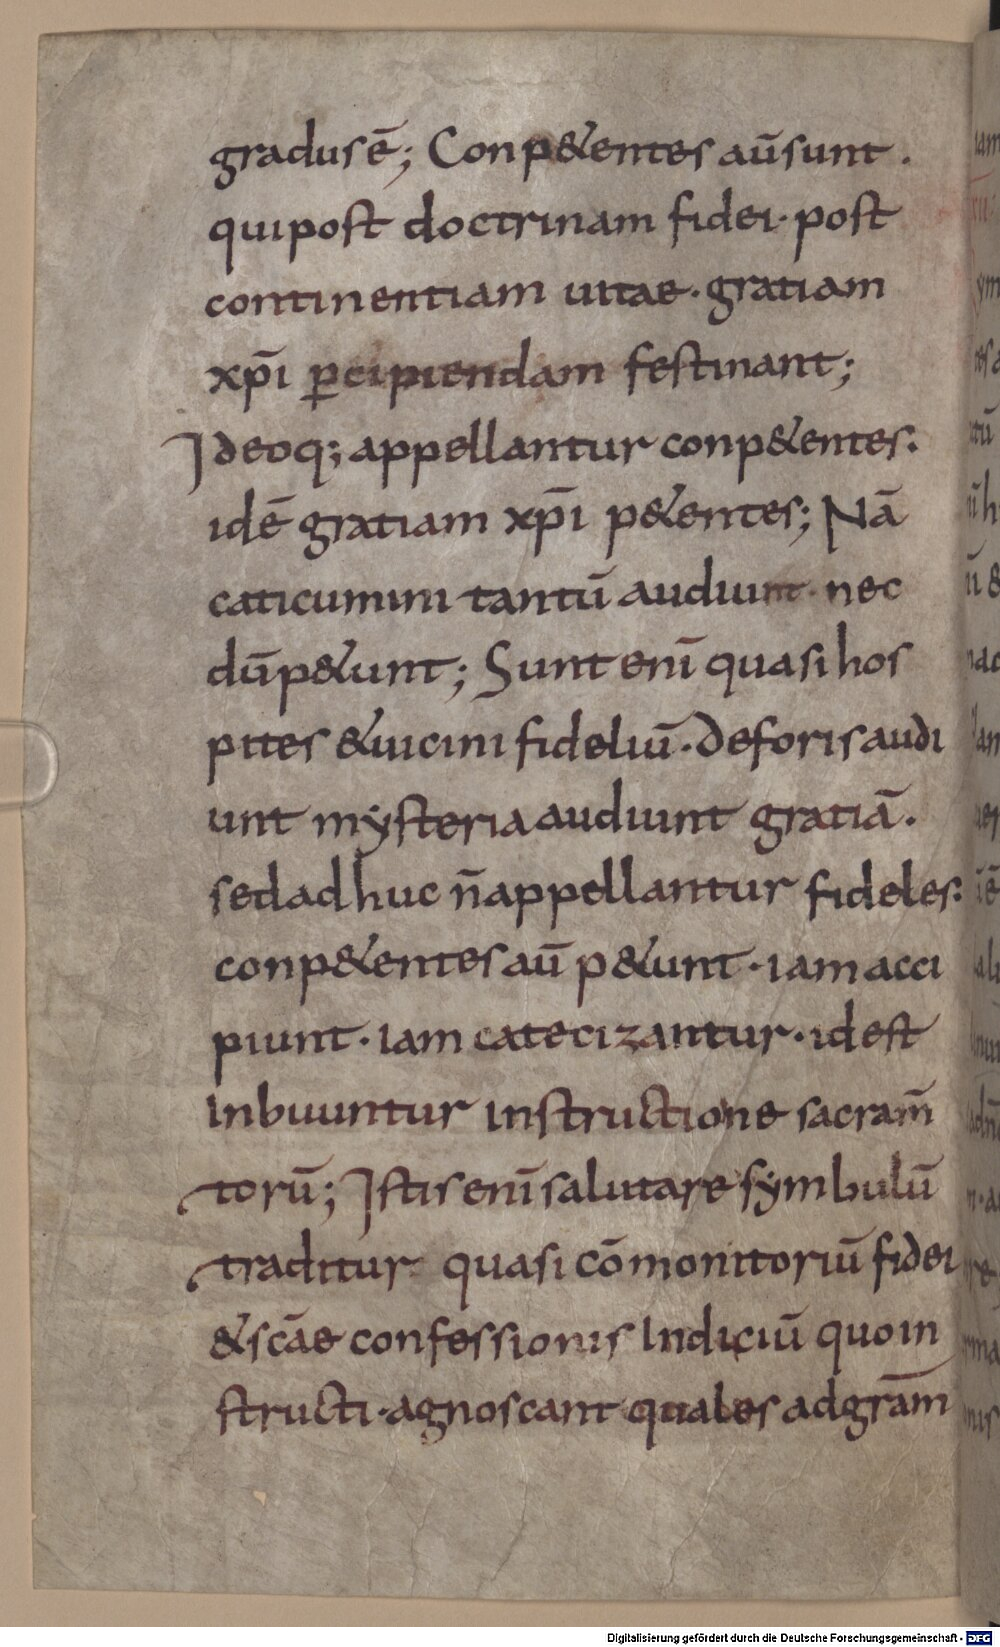 gradus ē; Conp&entes aū sunt .
qui post doctrinam fidei· post
continentiam uitae· gratiam
xp̄i ꝑcipiendam festinant;
Ideoq; appellantur conp&entes:
id ē gratiam xp̄i p&entes; Nā
caticumini tantū audiunt· nec
dū p&unt; Sunt enī quasi hos
pites & uicini fideliū· De foris audi
unt mysteria audiunt gratiā.
sed adhuc n̄ appellantur fideles:
conp&entes aū p&unt· iam acci
piunt· iam catecizantur· id est
inbuuntur instructione sacram̄
torū; Istis enī salutare symbulū
traditur quasi cōmonitoriū fidei
& scāe confessionis Indiciū quo in
structi· agnoscant quales ad grām
Digitalisierung gefördert durch die Deutsche Forschungsgemeinschaft - DFG